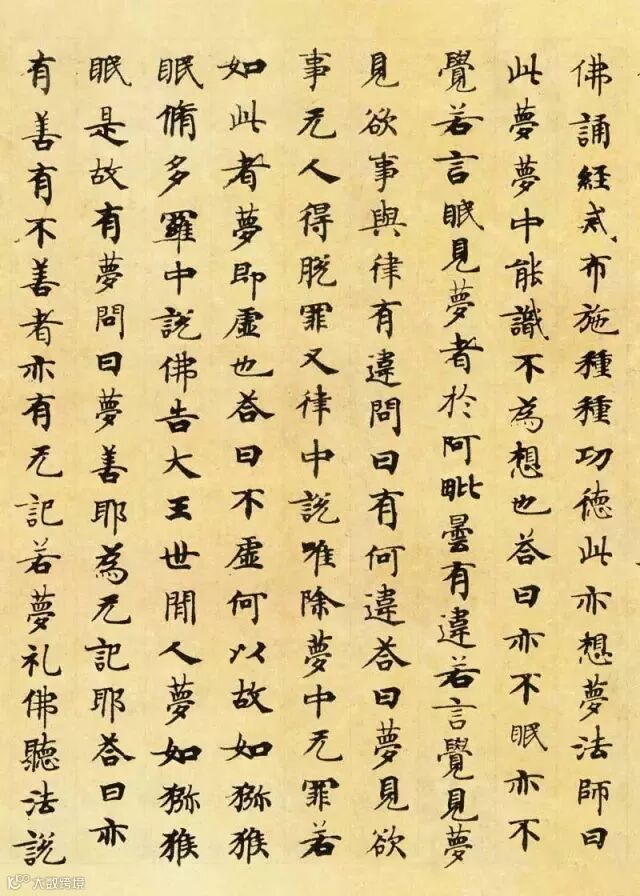 佛誦経戒布施種種功德此亦想夢法師曰
此夢夢中能識不為想也荅曰亦不眠亦不
覺若言眠見夢者於阿毗曇有違若言覺見夢
見欲事與律有違問曰有何違荅曰夢見欲
事无人得脱罪又律中說唯除夢中无罪若
如此者夢即虛也荅曰不虛何以故如猕猴
眠脩多羅中說佛告大王世間人夢如猕猴
眠是故有夢問曰夢善耶為无記耶荅曰亦
有善有不善者亦有无記若夢礼佛聽法說
大数跨境